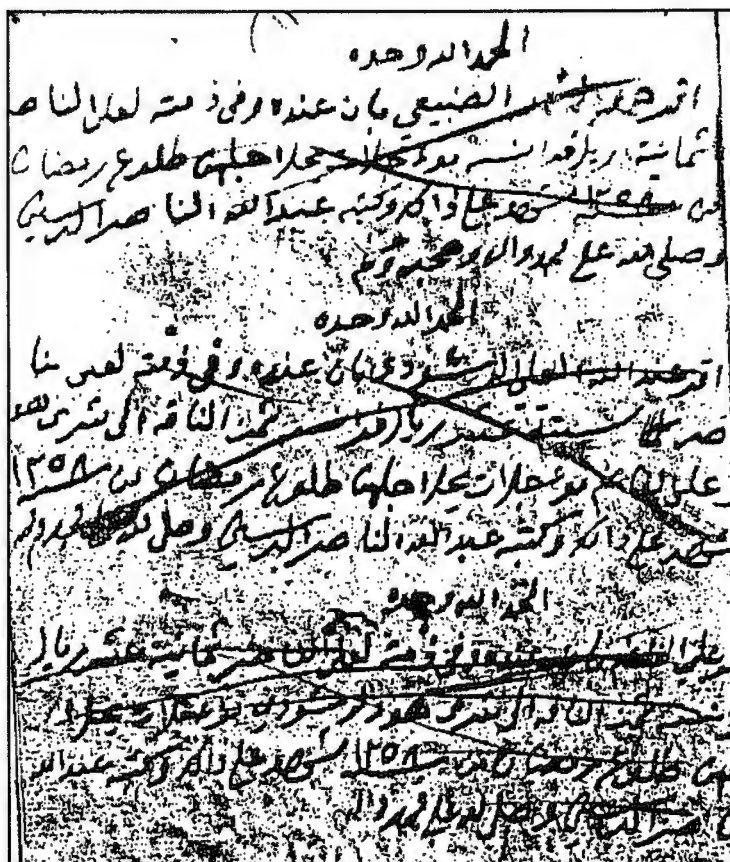 الحمد لله وحده
اقر الضبيعي بان عنده وفي ذمته لعلي الناصر
ثمانية اريل فرانسه مؤجلات يحل اجلهن طلوع رمضان
من سنة ١٣٥٨ شهد على ذالك وكتبه عبدالله الناصر
وصلى الله على محمد واله وصحبه وسلم
الحمد لله وحده
اقر عبدالله العلي بان عنده وفي ذمته لعلي النا
صر ستة عشر ريال ثمن الناقه الي شرى هو
وعلي مؤجلات يحل اجلهن طلوع رمضان من سنة ١٣٥٨
شهد على ذالك وكتبه عبدالله الناصر وصلى الله على محمد واله
الحمد لله وحده
عنده وفي ذمته لعلي الناصر ثمانية عشر ريال
ثمن الناقه الي شرى هو مؤجلات يحل
اجلهن طلوع رمضان من سنة ١٣٥٨ شهد على ذالك وكتبه عبدالله
وصلى الله على محمد واله